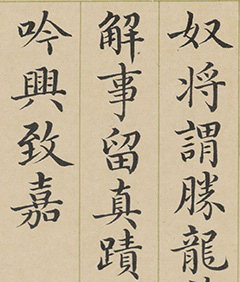 奴将謂勝龍
解事留真蹟
吟興致嘉